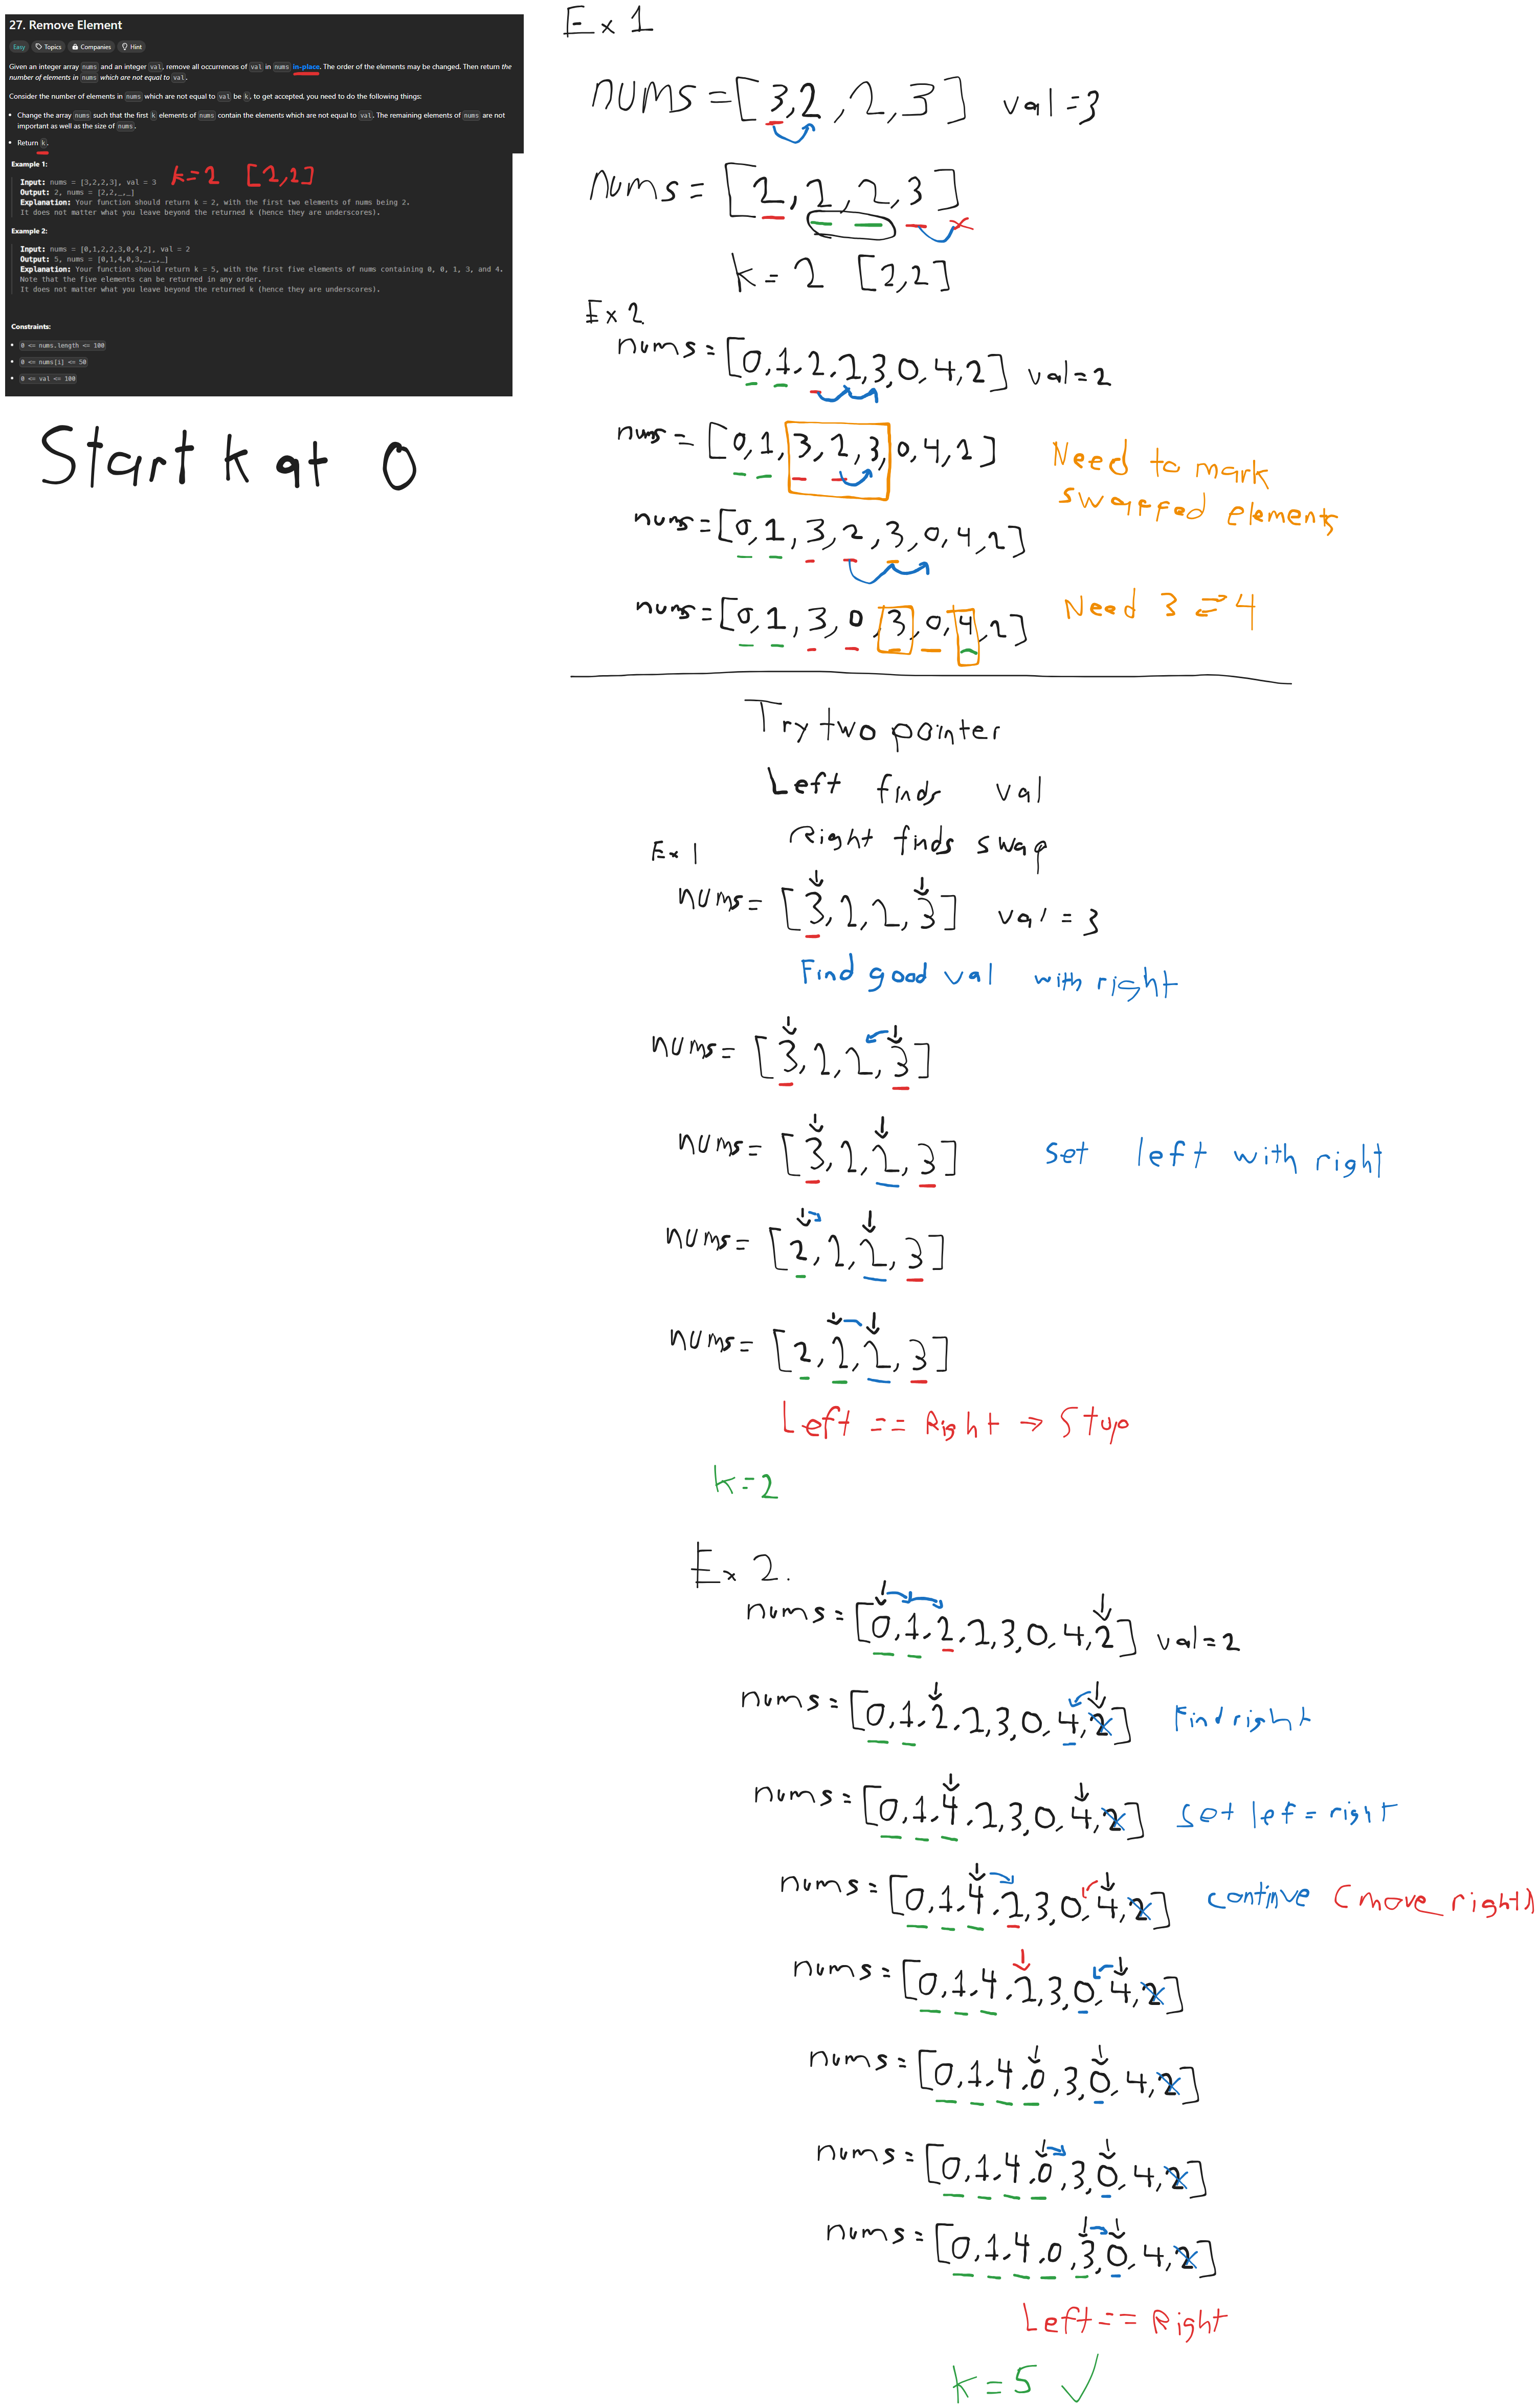 27. Remove Element
Easy Topics Companies Hint
Given an integer array nums and an integer val, remove all occurrences of val in nums in-place. The order of the elements may be changed. Then return the
number of elements in nums which are not equal to val.
Consider the number of elements in nums which are not equal to val be k, to get accepted, you need to do the following things:
• Change the array nums such that the first k elements of nums contain the elements which are not equal to val. The remaining elements of nums are not
important as well as the size of nums.
• Return k.
Example 1:
Input: nums = [3,2,2,3], val = 3
k=2 [2,2]
Output: 2, nums = [2,2,_,_]
Explanation: Your function should return k = 2, with the first two elements of nums being 2.
It does not matter what you leave beyond the returned k (hence they are underscores).
Example 2:
Input: nums = [0,1,2,2,3,0,4,2], val = 2
Output: 5, nums = [0,1,4,0,3,_,_,_]
Explanation: Your function should return k = 5, with the first five elements of nums containing 0, 0, 1, 3, and 4.
Note that the five elements can be returned in any order.
It does not matter what you leave beyond the returned k (hence they are underscores).
Constraints:
• 0 <= nums.length <= 100
• 0 <= nums[i] <= 50
• 0 <= val <= 100
Start k at 0
Ex 1
nums = [3,2,2,3] val = 3
nums = [2,2,2,3]
k = 2 [2,2]
Ex 2.
nums = [0,1,2,2,3,0,4,2] val = 2
nums = [0,1,3,2,3,0,4,2]
Need to mark
swapped elements
nums = [0,1,3,2,3,0,4,2]
nums = [0,1,3,0,3,0,4,2]
Need 3 ⇄ 4
Try two pointer
Left finds val
Right finds swap
Ex 1
nums = [3,2,2,3] val = 3
Find good val with right
nums = [3,2,2,3]
nums = [3,2,2,3] set left with right
nums = [2,2,2,3]
nums = [2,2,2,3]
Left == Right → Stop
k=2
Ex 2.
nums = [0,1,2,2,3,0,4,2] val = 2
nums = [0,1,2,2,3,0,4,2] Find right
nums = [0,1,4,2,3,0,4,2] set lef = right
nums = [0,1,4,2,3,0,4,2] continue (move right)
nums = [0,1,4,2,3,0,4,2]
nums = [0,1,4,0,3,0,4,2]
nums = [0,1,4,0,3,0,4,2]
nums = [0,1,4,0,3,0,4,2]
Left == Right
k = 5 ✓